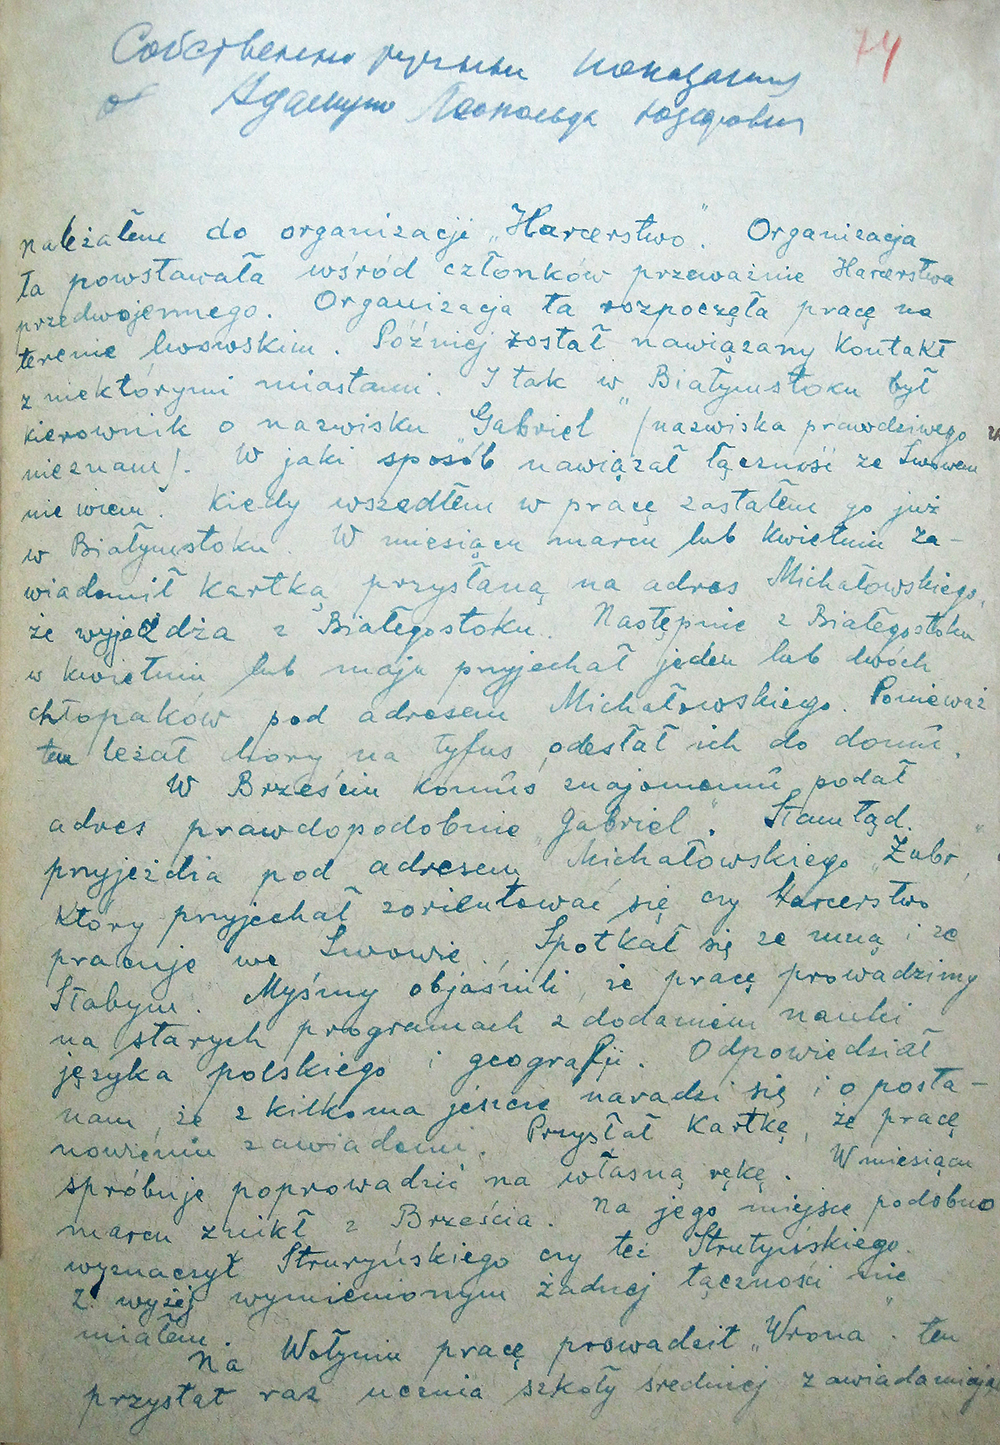 74
Собственно ручные показания
от Адамцио Леопольда
należałem do organizacji „Harcerstwo". Organizacja
ta powstawała wśród członków przeważnie Harcerstwa
przedwojennego. Organizacja ta rozpoczęła pracę na
terenie lwowskim. Później został nawiązany kontakt
z niektórymi miastami. I tak w Białymstoku był
kierownik o nazwisku „Gabriel" (nazwiska prawdziwego
nieznam). W jaki sposób nawiązał łączność ze Lwowem
nie wiem. Kiedy wszedłem w pracę zastałem go już
w Białymstoku. W miesiącu marcu lub kwietniu za-
wiadomił kartką przysłaną na adres Michałowskiego,
że wyjeżdża z Białegostoku. Następnie z Białegostoku
w kwietniu lub maju przyjechał jeden lub dwóch
chłopaków pod adresem Michałowskiego. Ponieważ
ten leżał chory na tyfus, odesłał ich do domu.
W Brześciu komuś znajomemu podał
adres prawdopodobnie „Gabriel". Stamtąd
przyjeżdża pod adresem Michałowskiego „Żubr"
który przyjechał zorientować się czy Harcerstwo
pracuje we Lwowie. Spotkał się ze mną i ze
Słabym. Myśmy objaśnili, że pracę prowadzimy
na starych programach z dodaniem nauki
języka polskiego i geografji. Odpowiedział
nam, że z kilkoma jeszcze naradzi się i o posta-
nowieniu zawiadomi. Przysłał kartkę, że pracę
spróbuje poprowadzić na własną rękę. W miesiącu
marcu znikł z Brześcia. Na jego miejsce podobno
wyznaczył Struryńskiego czy też Strutyńskiego.
Z wyżej wymienionym żadnej łączności nie
miałem.
Na Wołyniu pracę prowadził „Wrona". ten
przysłał raz ucznia szkoły średniej zawiadamiając